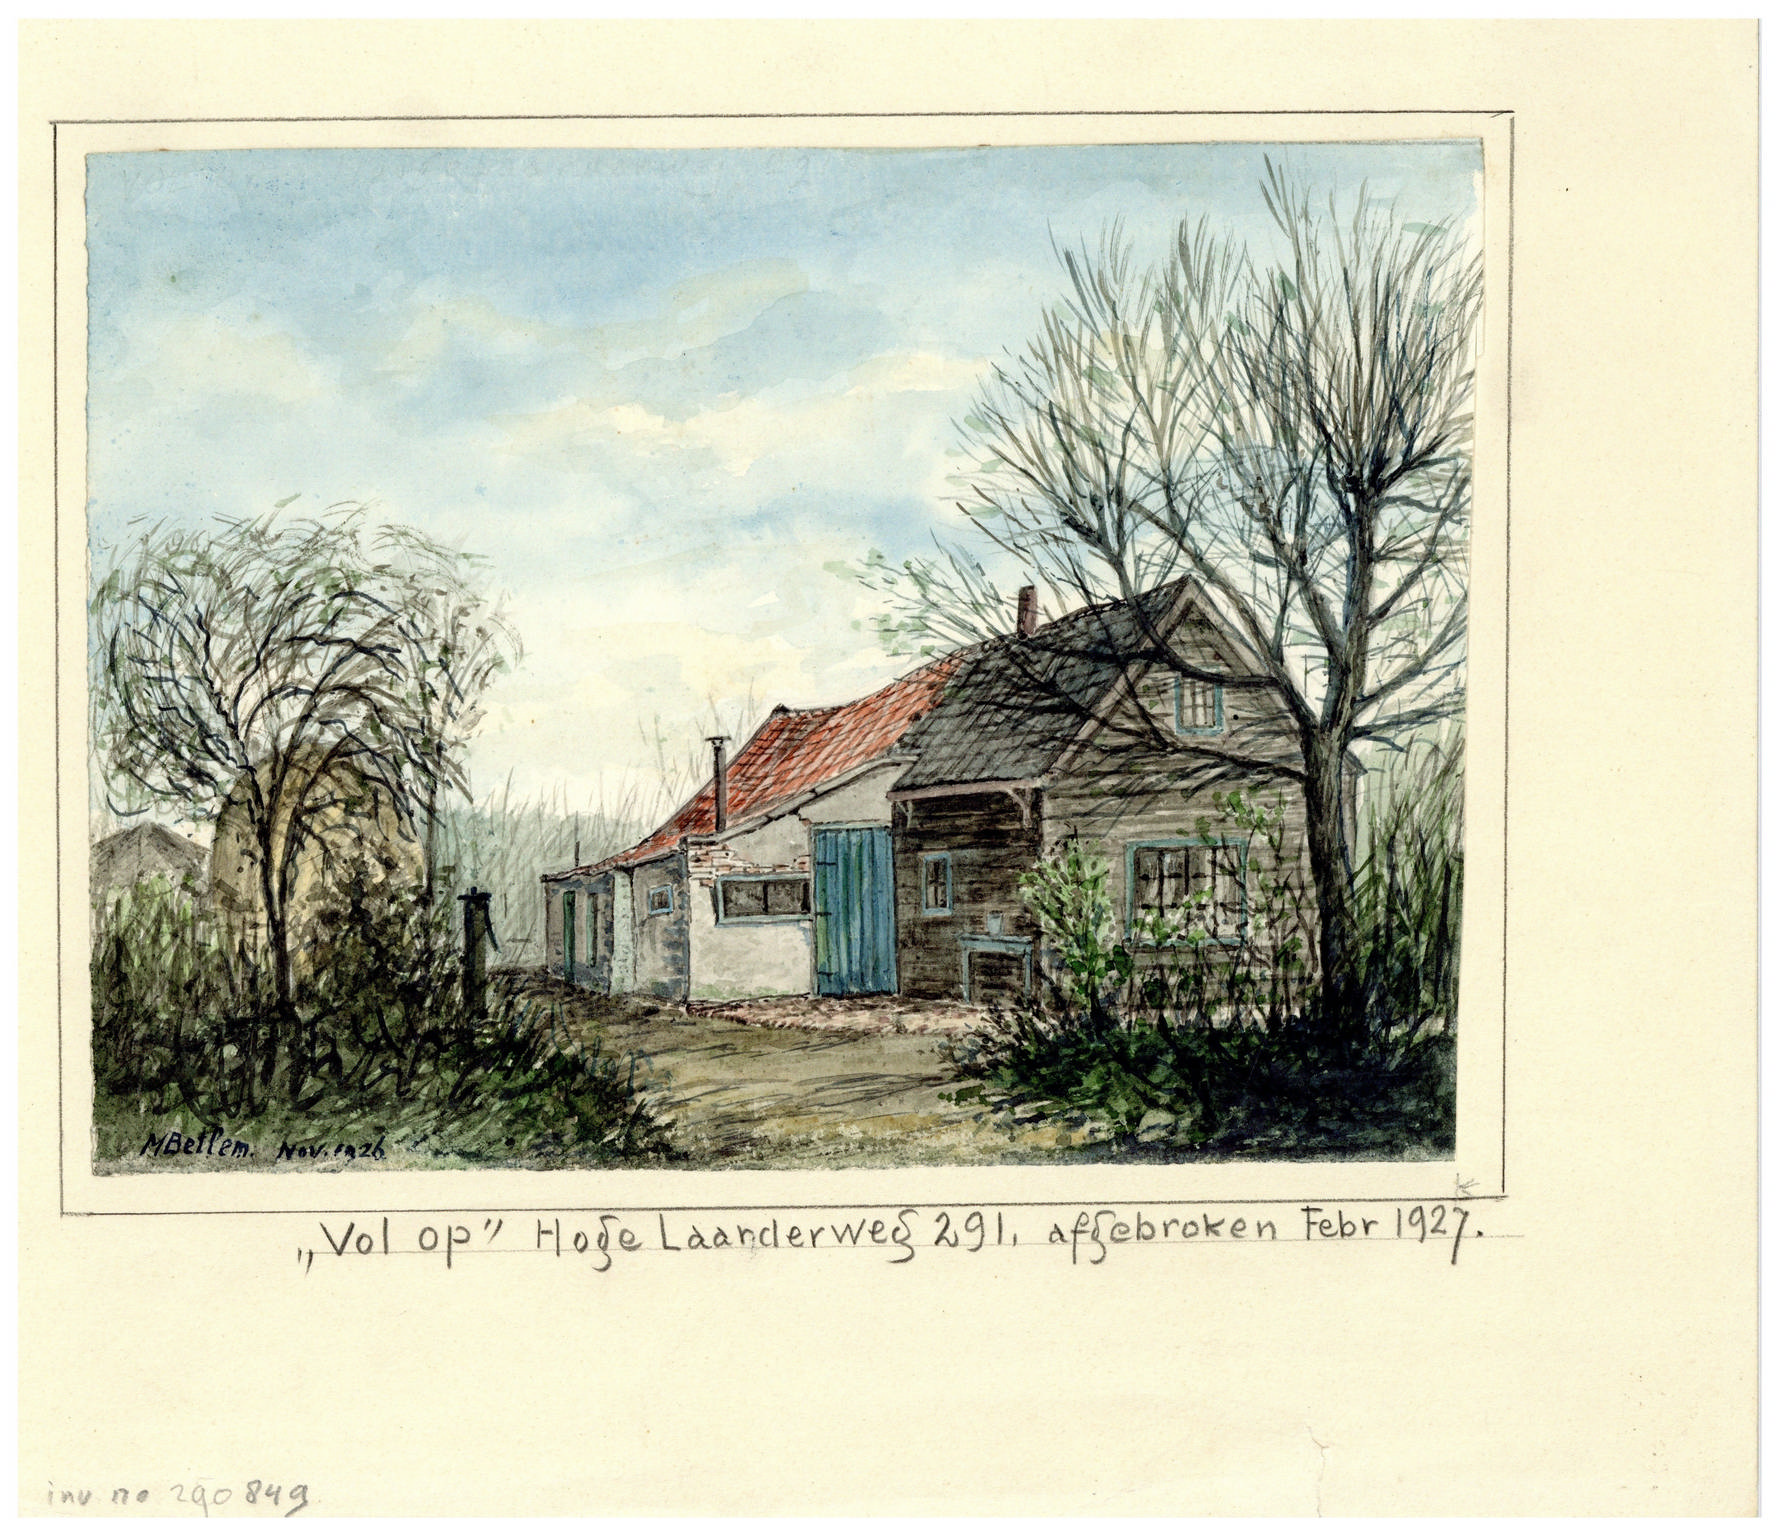 MBetlem. Nov. 1926
„Vol op” Hoge Laarderweg 291, afgebroken Febr 1927.
inv no 290849